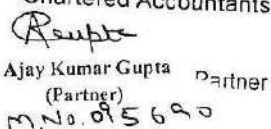 Chartered Accountants
Ajay Kumar Gupta Partner
(Partner)
M.No. 095690